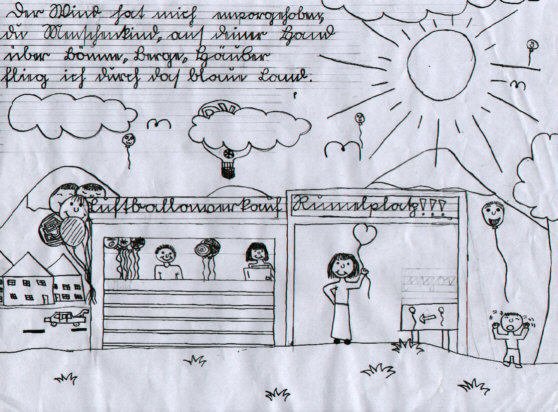 Der Wind hat mich emporgehoben,
du Menschenkind, aus deiner Hand
über Bäume, Berge, Häuser
flieg ich durch das blaue Land.
Luftballonverkauf Rumelplatz!!!